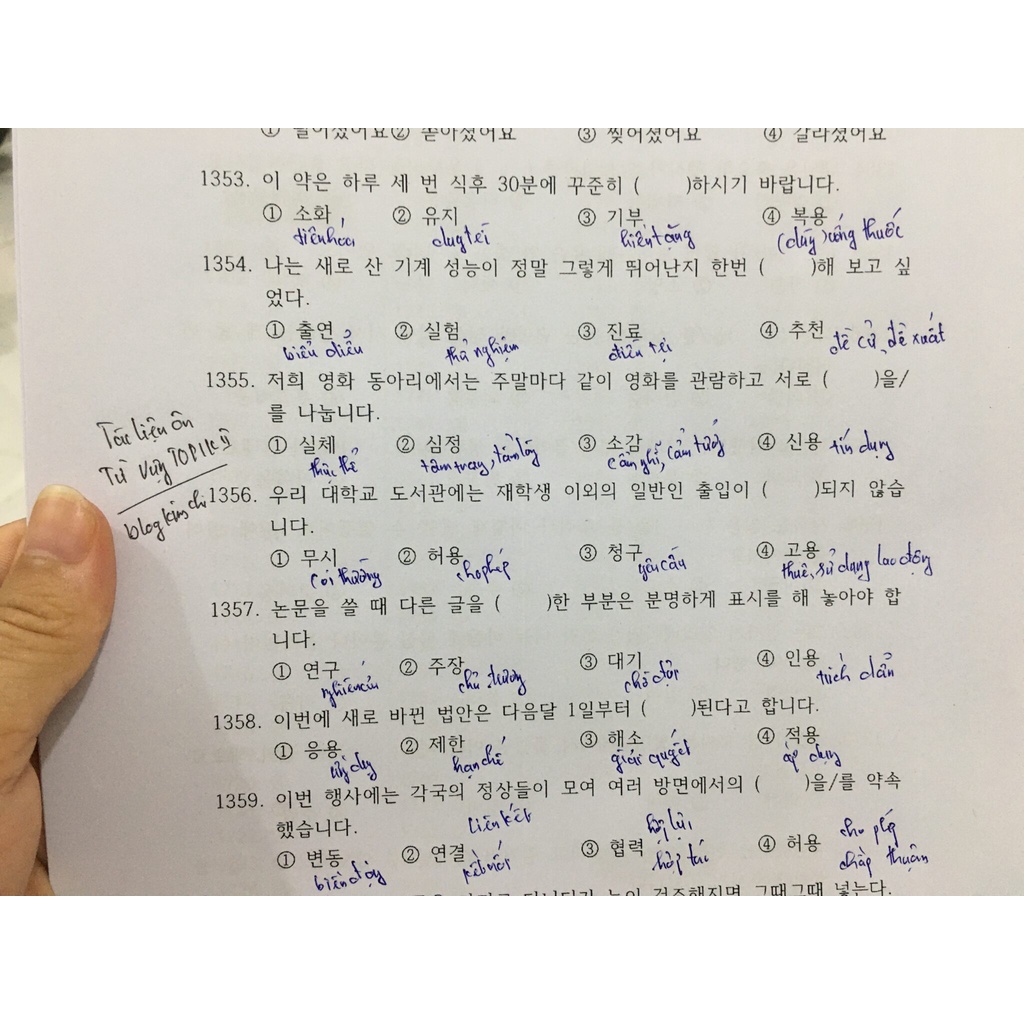 ① 떨어졌어요 ② 쏟아졌어요 ③ 찢어졌어요 ④ 갈라졌어요
1353. 이 약은 하루 세 번 식후 30분에 꾸준히 ( )하시기 바랍니다.
① 소화 ② 유지 ③ 기부 ④ 복용
tiêu hóa duy trì hiến tặng (dùng) uống thuốc
1354. 나는 새로 산 기계 성능이 정말 그렇게 뛰어난지 한번 ( )해 보고 싶
었다.
① 출연 ② 실험 ③ 진료 ④ 추천
biểu diễn thử nghiệm điều trị đề cử, đề xuất
1355. 저희 영화 동아리에서는 주말마다 같이 영화를 관람하고 서로 ( )을/
를 나눕니다.
① 실체 ② 심정 ③ 소감 ④ 신용
thực thể tâm trạng, tấm lòng cảm nghĩ, cảm tưởng tín dụng
Tài liệu ôn
Từ vựng TOPIK II
blog kim chi
1356. 우리 대학교 도서관에는 재학생 이외의 일반인 출입이 ( )되지 않습
니다.
① 무시 ② 허용 ③ 청구 ④ 고용
coi thường cho phép yêu cầu thuê, sử dụng lao động
1357. 논문을 쓸 때 다른 글을 ( )한 부분은 분명하게 표시를 해 놓아야 합
니다.
① 연구 ② 주장 ③ 대기 ④ 인용
nghiên cứu chủ trương chờ đợi trích dẫn
1358. 이번에 새로 바뀐 법안은 다음달 1일부터 ( )된다고 합니다.
① 응용 ② 제한 ③ 해소 ④ 적용
ứng dụng hạn chế giải quyết áp dụng
1359. 이번 행사에는 각국의 정상들이 모여 여러 방면에서의 ( )을/를 약속
했습니다.
liên kết hợp lực, cho phép
① 변동 ② 연결 ③ 협력 ④ 허용
biến động kết nối hợp tác chấp thuận
그때그때 넣는다.